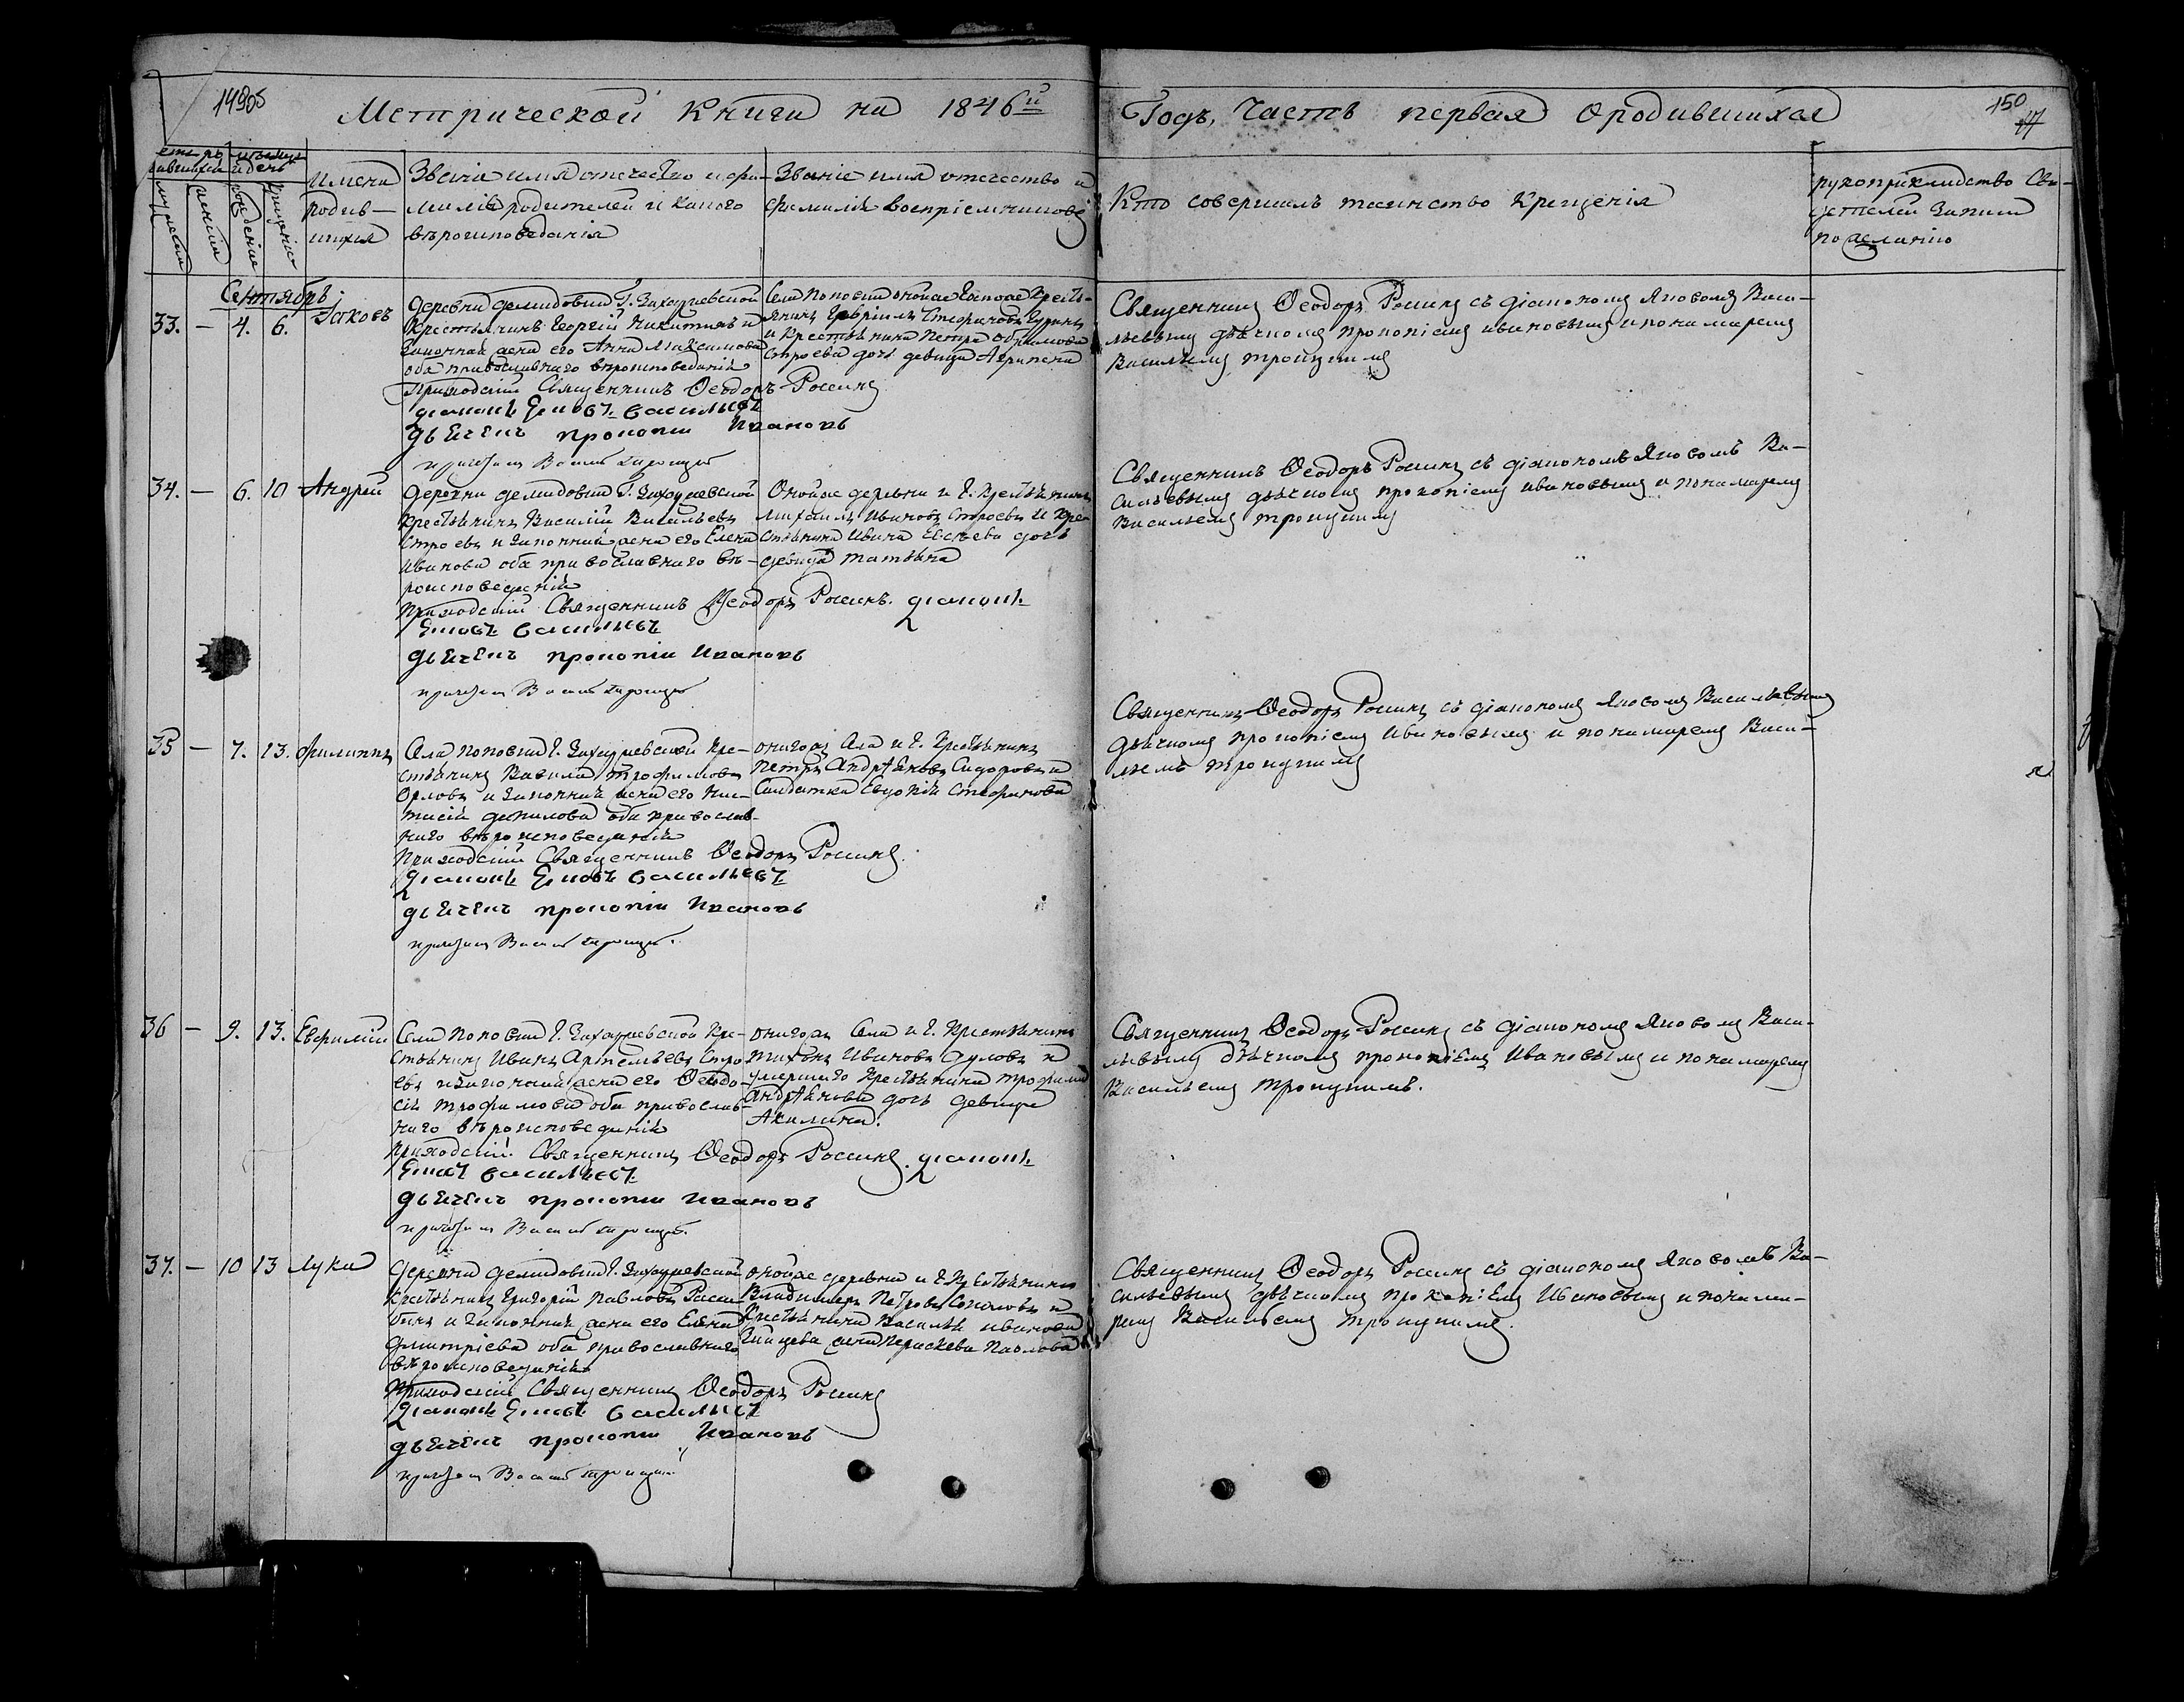 150
Метрической Книги на 1846й Годъ, Часть первая о родившихся
имена
родив-
шихся
Званіе имя отечество и фа-
милія родителей и какого
вѣроисповеданія
Званіе имя отечество и
фамилія воспріемниковъ
Кто совершалъ таинство Крещенія
рукоприкладство Сви-
детелей записи
по желанію
Сентябрь
33. — 4. 6. Іаковъ
деревни демидовки Г. Захаржевской
Крестьянинъ Георгій Никитинъ и
Законная жена его Анна Максимова
оба православнаго вѣроисповеданія
Приходскій Священникъ Ѳеодоръ Росинъ
діаконъ Яковъ Васильевъ
дьячекъ прокопіи Ивановъ
Села поповки оной же Гжи Кресть-
янинъ Гавріилъ Стефановъ
и Крестьянина Петра
Строева дочь девица Агрипена
Священникъ Ѳеодоръ Росинъ съ діакономъ Яковомъ Васи-
льевымъ дьячкомъ прокопіемъ ивановымъ и понамаремъ
Васильемъ троицкимъ
34. — 6. 10 Андрей
деревни демидовки Г. Захаржевской
Крестьянинъ Василій Васильевъ
Строевъ и законная жена его Елена
Иванова оба православнаго вѣ-
роисповеданія
Приходскій Священникъ Ѳеодоръ Росинъ. діаконъ
Яковъ Васильевъ
дьячекъ прокопіи Ивановъ
Оной же деревни и Г. Крестьянинъ
михаилъ Ивановъ Строевъ и Кре-
стьянина Ивана Евсѣева дочь
девица татьяна
Священникъ Ѳеодоръ Росинъ съ діакономъ Яковомъ Ва-
сильевымъ дьячкомъ прокопіемъ ивановымъ и понамаремъ
Васильемъ троицкимъ
35 — 7. 13. Филиппъ
Села поповки Г. Захаржевской Кре-
стьянинъ Василій Трофимовъ
Орловъ и законная жена его Нас-
тасія данилова оба православ-
наго вѣроисповеданія
Приходскій Священникъ Ѳеодоръ Росинъ.
діаконъ Яковъ Васильевъ
дьячекъ прокопіи Ивановъ
Онагожъ Села и Г. Крестьянинъ
Петръ Андрѣяновъ Сидоровъ и
Салдатка Евдокія Стефанова
Священникъ Ѳеодоръ Росинъ съ діакономъ Яковомъ Васильевымъ
дьячкомъ прокопіемъ Ивановымъ и понамаремъ Васи-
льемъ троицкимъ
36 — 9. 13. Евфимій
Села поповки Г. Захаржевской Кре-
стьянинъ Иванъ Артемьевъ Стро
евъ и законная жена его Ѳеодо-
сія трофимова оба православ-
наго вѣроисповеданія
Приходскій Священникъ Ѳеодоръ Росинъ. діаконъ
Яковъ Васильевъ
дьячекъ прокопіи Ивановъ
Онагожъ Села и Г. Крестьянинъ
тихонъ Ивановъ дуловъ и
умершаго Крестьянина трофима
Андрѣянова дочь девица
Акилина.
Священникъ Ѳеодоръ Росинъ съ діакономъ Яковомъ Васи-
льевымъ дьячкомъ прокопіемъ Ивановымъ и понамаремъ
Васильемъ троицкимъ.
37. — 10 13 Лука
деревни демидовки Г. Захаржевской
Крестьянинъ Григорій павловъ
и законная жена его Елена
дмитріева оба православнаго
вѣроисповеданія
Приходскій Священникъ Ѳеодоръ Росинъ
діаконъ Яковъ Васильевъ
дьячекъ прокопіи Ивановъ
оной же деревни и Г. Крестьянинъ
Владимиръ Петровъ Соколовъ и
Крестьянина Василья иванова
Зайцева жена Параскева Павлова
Священникъ Ѳеодоръ Росинъ съ діакономъ Яковомъ Ва-
сильевымъ дьячкомъ прокопіемъ Ивановымъ и понама-
ремъ Васильемъ троицкимъ.